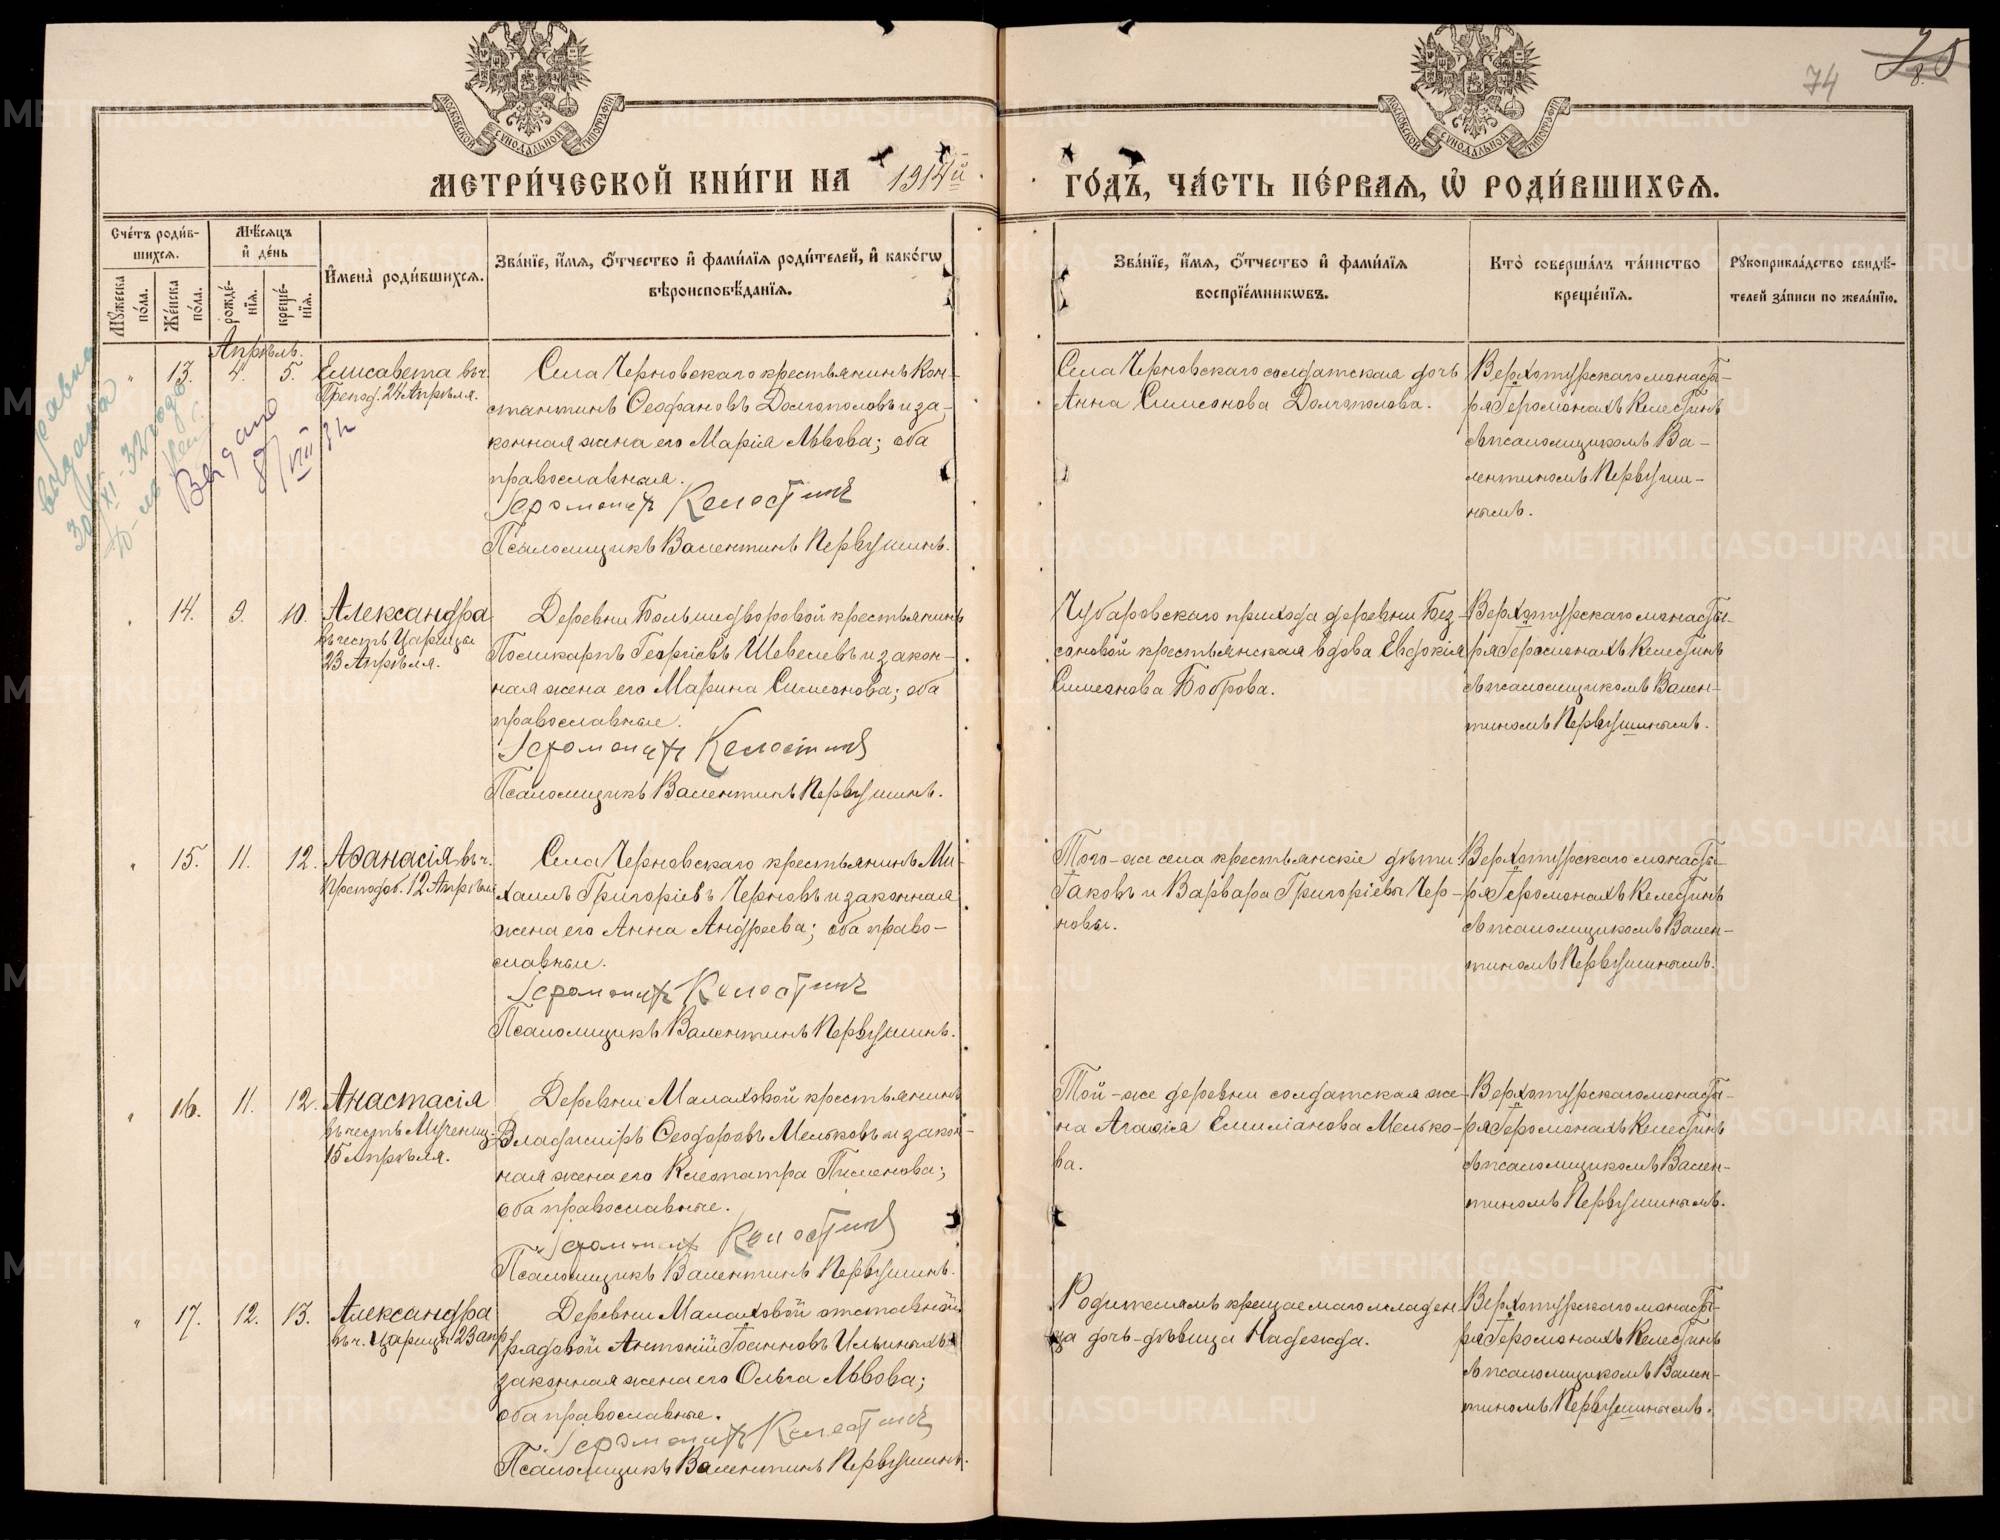 МОСКОВСКОЙ СѴНОДАЛЬНОЙ ТИПОГРАФІИ
МОСКОВСКОЙ СѴНОДАЛЬНОЙ ТИПОГРАФІИ
74
МЕТРИ́ЧЕСКОЙ КНИ́ГИ НА 1914й
ГО́ДЪ, ЧА́СТЬ ПЕ́РВАЯ, Ѡ РОДИ́ВШИХСЯ.
Сче́тъ роди́в-
шихся.
Мѣ́сяцъ
и де́нь
Му́жеска по́ла.
Же́нска по́ла.
рожде́-
нія.
креще́-
нія.
Имена̀ роди́вшихся.
Зва́ніе, и́мя, о́тчество и фами́лія роди́телей, и како́гѡ
вѣроисповѣ́данія.
Зва́ніе, и́мя, о́тчество и фами́лія
воспріе́мникѡвъ.
Кто̀ соверша́лъ та́инство
креще́нія.
Рукоприкла́дство свидѣ́-
телей за́писи по жела́нію.
Апрѣль.
" 13. 4. 5.
Елисавета въ ч.
Препод. 24 Апрѣля.
Села Черновскаго крестьянинъ Кон-
стантинъ Ѳеофановъ Долгополовъ и за-
конная жена его Марія Львова; оба
православныя.
Іеромонахъ Келестинъ
Псаломщикъ Валентинъ Первушинъ.
Села Черновскаго солдатская дочь
Анна Симеонова Долгополова.
Верхотурскаго монасты-
ря Іеромонахъ Келестинъ
съ псаломщикомъ Ва-
лентиномъ Первуши-
нымъ.
" 14. 9. 10.
Александра
въ честь Царицы
23 Апрѣля.
Деревни Большедворовой крестьянинъ
Поликарпъ Георгіевъ Шевелевъ и закон-
ная жена его Марина Симеонова; оба
православные.
Іеромонахъ Келестинъ
Псаломщикъ Валентинъ Первушинъ.
Чубаровскаго прихода деревни Без-
соновой крестьянская вдова Евдокія
Симеонова Боброва.
Верхотурскаго монасты-
ря Іеромонахъ Келестинъ
съ псаломщикомъ Вален-
тиномъ Первушинымъ.
" 15. 11. 12.
Аѳанасія въ ч.
Преподоб. 12 Апрѣля
Села Черновскаго крестьянинъ Ми-
хаилъ Григоріевъ Черновъ и законная
жена его Анна Андреева; оба право-
славные.
Іеромонахъ Келестинъ
Псаломщикъ Валентинъ Первушинъ.
Того-же села крестьянскіе дѣти
Іаковъ и Варвара Григоріевы Чер-
новы.
Верхотурскаго монасты-
ря Іеромонахъ Келестинъ
съ псаломщикомъ Вален-
тиномъ Первушинымъ.
" 16. 11. 12.
Анастасія
въ честь Мучениц.
15 Апрѣля.
Деревни Малаховой крестьянинъ
Владиміръ Ѳеодоровъ Мельковъ и закон-
ная жена его Клеопатра Пименова;
оба православные.
Іеромонахъ Келестинъ
Псаломщикъ Валентинъ Первушинъ.
Той-же деревни солдатская же-
на Агафія Емиліанова Мелько-
ва.
Верхотурскаго монасты-
ря Іеромонахъ Келестинъ
съ псаломщикомъ Вален-
тиномъ Первушинымъ.
" 17. 12. 13.
Александра
въ ч. Царицы 23 апр
Деревни Малаховой отставной
рядовой Антоній Іоанновъ Ильиныхъ и
законная жена его Ольга Львова;
оба православные.
Іеромонахъ Келестинъ
Псаломщикъ Валентинъ Первушинъ.
Родителямъ крещаемаго младен-
ца дочь-дѣвица Надежда.
Верхотурскаго монасты-
ря Іеромонахъ Келестинъ
съ псаломщикомъ Вален-
тиномъ Первушинымъ.
METRIKI.GASO-URAL.RU